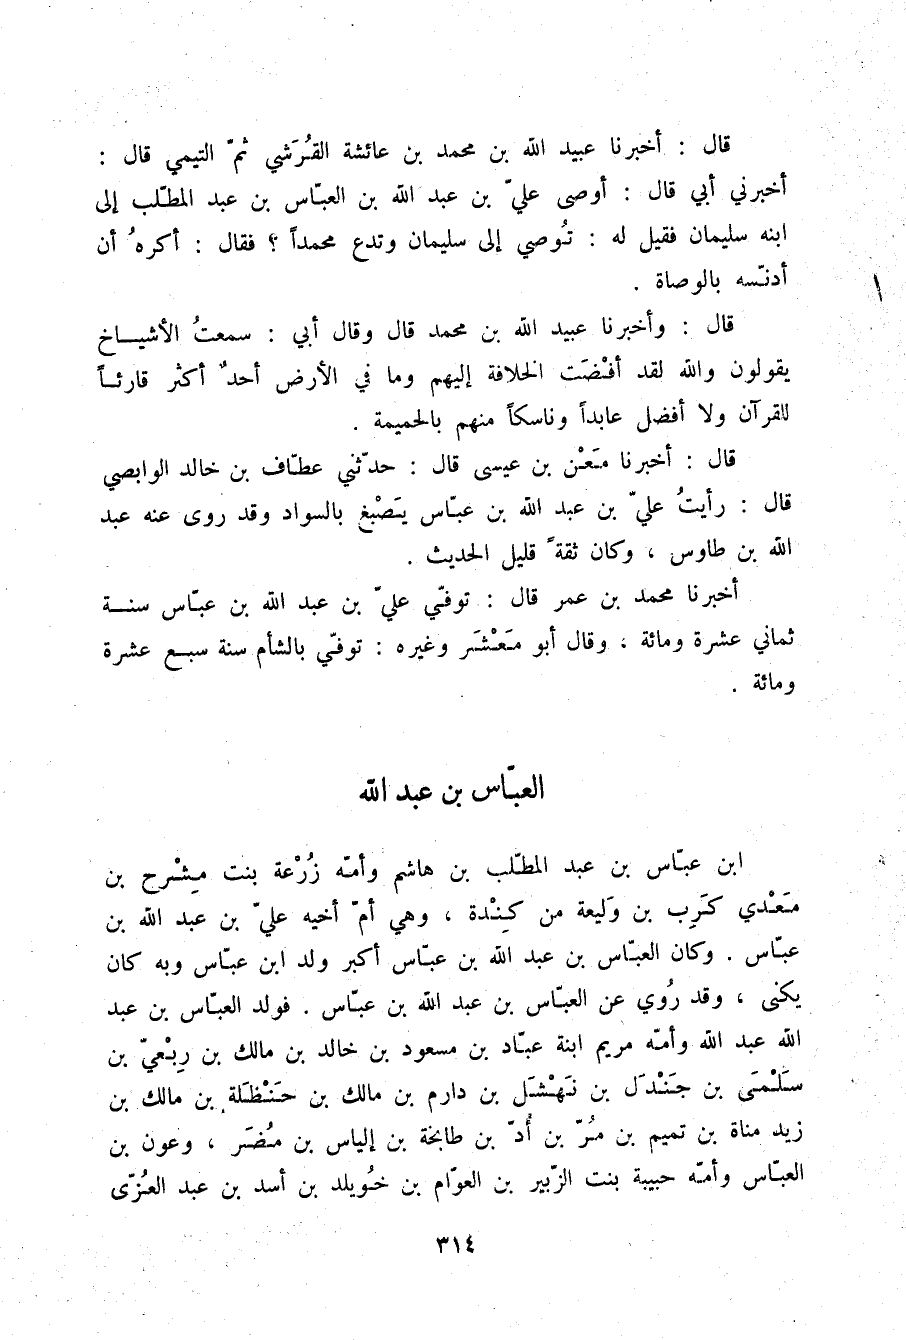 قال : أخبرنا عبيد الله بن محمد بن عائشة القُرَشي ثمّ التيمي قال :
أخبرني أبي قال : أوصى عليّ بن عبد الله بن العبّاس بن عبد المطّلب إلى
ابنه سليمان فقيل له : تُوصي إلى سليمان وتدع محمداً ؟ فقال : أكرهُ أن
أدنّسه بالوصاة .
قال : وأخبرنا عبيد الله بن محمد قال وقال أبي : سمعتُ الأشيـــاخ
يقولون والله لقد أفْضَت الخلافة إليهم وما في الأرض أحدٌ أكثر قارئــاً
للقرآن ولا أفضل عابداً وناسكاً منهم بالحميمة .
قال : أخبرنا مَعْن بن عيسى قال : حدّثني عطّاف بن خالد الوابصي
قال : رأيتُ عليّ بن عبد الله بن عبّاس يَصْبغ بالسواد وقد روى عنه عبد
الله بن طاوس ، وكان ثقةً قليل الحديث .
أخبرنا محمد بن عمر قال : توفّي عليّ بن عبد الله بن عبّاس سنــة
ثماني عشرة ومائة . وقال أبو مَعْشَر وغيره : توفّي بالشأم سنة سبـع عشرة
ومائة .
العبّاس بن عبد الله
ابن عبّاس بن عبد المطّلب بن هاشم وأمّه زُرْعة بنت مِشْرح بن
مَعْدي كَرِب بن وَليعة من كِنْدة ، وهي أمّ أخيه عليّ بن عبد الله بن
عبّاس . وكان العبّاس بن عبد الله بن عبّاس أكبر ولد ابن عبّاس وبه كان
يكنى ، وقد رُوي عن العبّاس بن عبد الله بن عبّاس . فولد العبّاس بن عبد
الله عبد الله وأمّه مريم ابنة عبّاد بن مسعود بن خالد بن مالك بن رِبْعيّ بن
سَلْمَى بن جَنْدَل بن نَهْشَل بن دارم بن مالك بن حَنْظَلة بن مالك بن
زيد مناة بن تميم بن مُرّ بن أُدّ بن طابخة بن إلياس بن مُضَر ، وعون بن
العبّاس وأمّه حبيبة بنت الزّبير بن العوّام بن خُويلد بن أسد بن عبد العُزّى
٣١٤